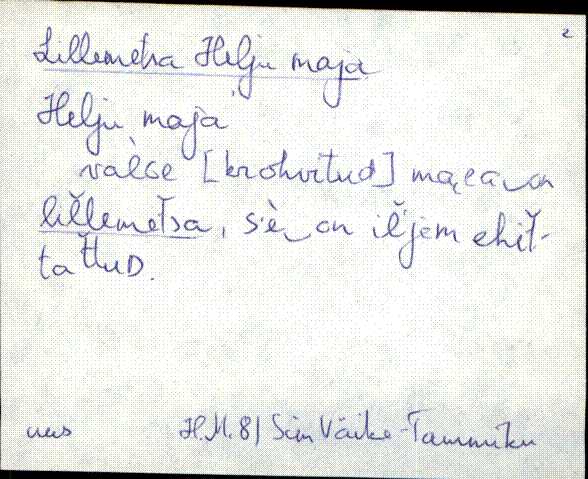 2
Lillemetsa Helju maja
Helju maja
valGe [krohvitud] maea‿on
lil̆lemet̆sa, s'è‿on il̆jem ehit̆-
tat̆tuD.
uus H.M. 81 Sim Väike-Tammiku